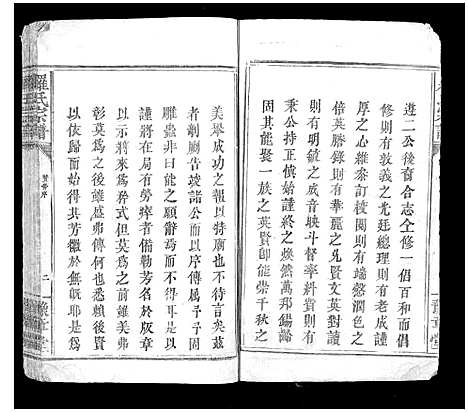 遊二公後裔合志仝修一倡百和而倡
修則有敦義之光廷總理則有老成謹
厚之心維泰訂校閱則有端慤潤色之
倍英謄錄則有華麗之凡賢文英對讀
則有明敏之成音映斗督率料貲則有
秉公持正慎始謹終之煥然萬邦錫齡
固其能聚一族之英賢卽能常千秋之
美舉成功之報以特廟也不待言矣茲
者剞劂告竣諸公而以序傳爲予予固
雕蟲非曰能之願辭焉而不獲於是乎
謹將在局有勞瘁者備勒芳名於版章
以示將來爲矜式但莫爲之前雖美弗
彰莫爲之後雖盛弗傳何也悉賴後賢
以依歸而始得共芳徽於無旣耶是爲
羅氏宗譜
贊齊序
二
豫章堂
豫章堂